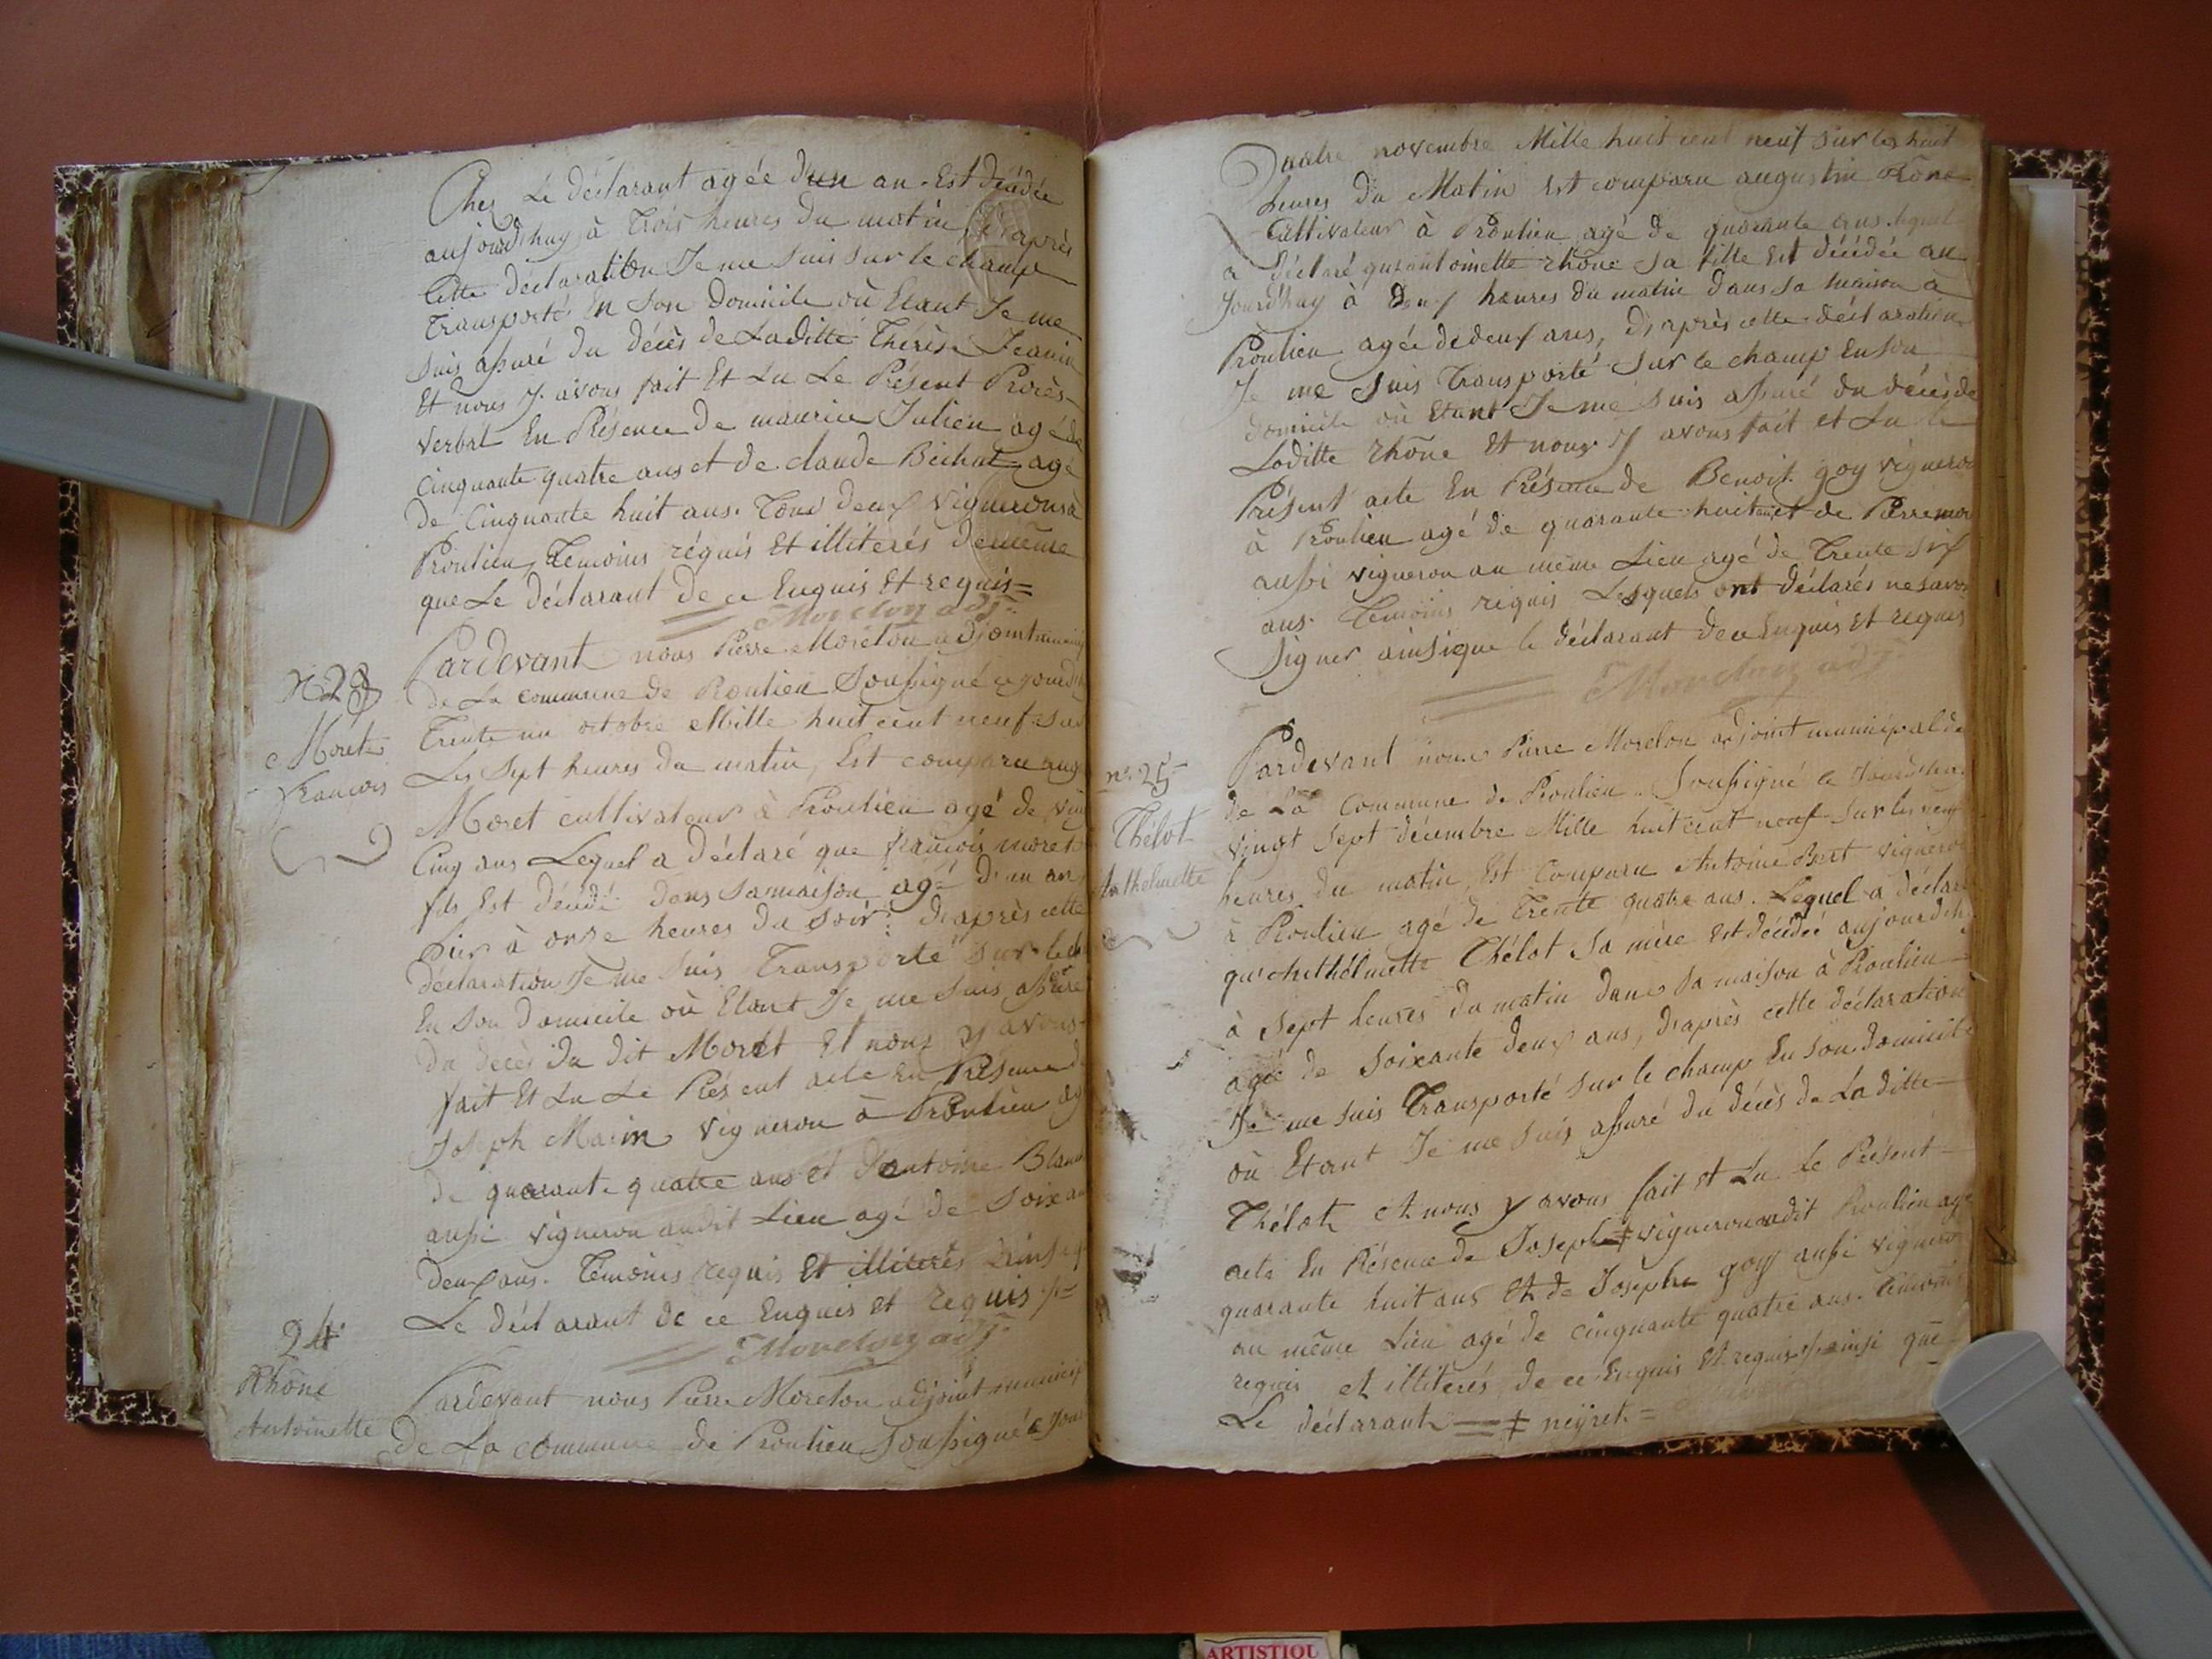 Chez Le déclarant agée dun an. Est décédée
aujourdhuy à Trois heures du matin, d'après
Cette déclaration Je me suis sur le champ
Transporté En Son Domicile où Etant Je me
suis assuré du décès de Laditte Thérèse Jeanin
Et nous Y avons fait Et Lu Le Présent Procès
verbal En Présence de maurice Julien agé de
Cinquante quatre ans et de claude Béchet agé
de Cinquante huit ans. Tous deux vignerons à
Proulieu, Temoins réquis Et illitérés de même
que Le déclarant de ce Enquis Et requis =
Morelon adj.
N. 23
Moret
françois
Pardevant nous Pierre Morelon adjoint
de La commune de Proulieu Soussigné
Trente un octobre Mille huit cent neuf sur
Les Sept heures du matin, Est comparu
Moret cultivateur à Proulieu agé de
Cinq ans Lequel a déclaré que françois moret
fils Est décédé dans sa maison agé d'un an
hier à onze heures du Soir. D'après cette
déclaration Je me Suis Transporté sur le
En Son Domicile où Etant Je me suis assuré
du décès du dit Moret Et nous Y avons
fait Et Lu Le Présent acte En Présence
Joseph Marin Vigneron à Proulieu
de quarante quatre ans et d'antoine
aussi vigneron audit Lieu agé de
deux ans. Témoins requis Et illiterés
Le déclarant de ce Enquis et requis
Morelon adj.
24
Rhône
Antoinette
Pardevant nous Pierre Morelon adjoint
de La commune de Proulieu Soussigné
Quatre novembre Mille huit cent neuf sur les huit
heures du Matin Est comparu augustin Rhône
Cultivateur à Proulieu agé de quarante ans. lequel
a déclaré qu'antoinette rhône sa fille Est décédée au
Jourd'huy à deux heures du matin dans sa maison à
Proulieu agée de deux ans, d'après cette déclaration
Je me Suis Transporté sur le champ En son
domicile où Etant Je me suis assuré du décès de
Laditte rhône Et nous Y avons fait et Lu le
Présent acte En Présence de Benoit goy vigneron
à Proulieu agé de quarante huit ans et de Pierre
aussi vigneron au même Lieu agé de Trente six
ans. Temoins requis Lesquels ont déclarés ne
Signer ainsique le déclarant de ce Enquis Et requis
Morelon adj.
n. 25
Thélot
Pardevant nous Pierre Morelon adjoint municipal de
de La Commune de Proulieu Soussigné
vingt sept décembre Mille huit cent neuf Sur les neuf
heures du matin, Est Comparu Antoine vigneron
à Proulieu agé de Trente quatre ans. Lequel a déclaré
Thélot Sa mère Est décédée
à Sept heures du matin dans Sa maison à Proulieu
agée de Soixante deux ans, D'après cette déclaration
Je me suis Transporté sur le champ En son domicile
où Etant Je me suis assuré du décès de Laditte
Thélot Et nous y avons fait et Lu Le Présent
acte En Présence de Joseph ‡ vigneron audit Proulieu agé
quarante huit ans Et de Joseph goy aussi vigneron
au même Lieu agé de cinquante quatre ans. Témoins
requis et illitérés, de ce Enquis Et requis ainsi que
Le déclarant = ‡ neyret =
ARTISTIQU